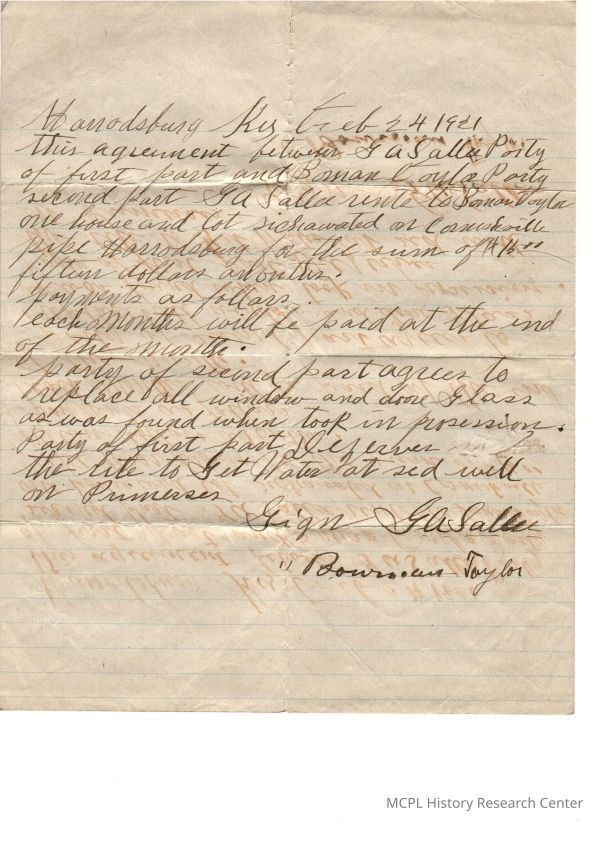 Harrodsburg Ky Feb 24 1921
this agreement between G A Sallee Party
of first part and Boman Taylor Party
second part G A Sallee rents to Boman Taylor
one house and lot sichawated on Cornishville
pike Harrodsburg for the sum of $15.00
fifteen dollars a month.
payments as follars.
each months will be paid at the end
of the month.
party of second part agrees to
replace all window and dore Glass
as was found when took in prosession.
Party of first part Reserves
the rite to Get Water at sed well
on Primerses
Sign G A Sallee
" Bowman Taylor
MCPL History Research Center